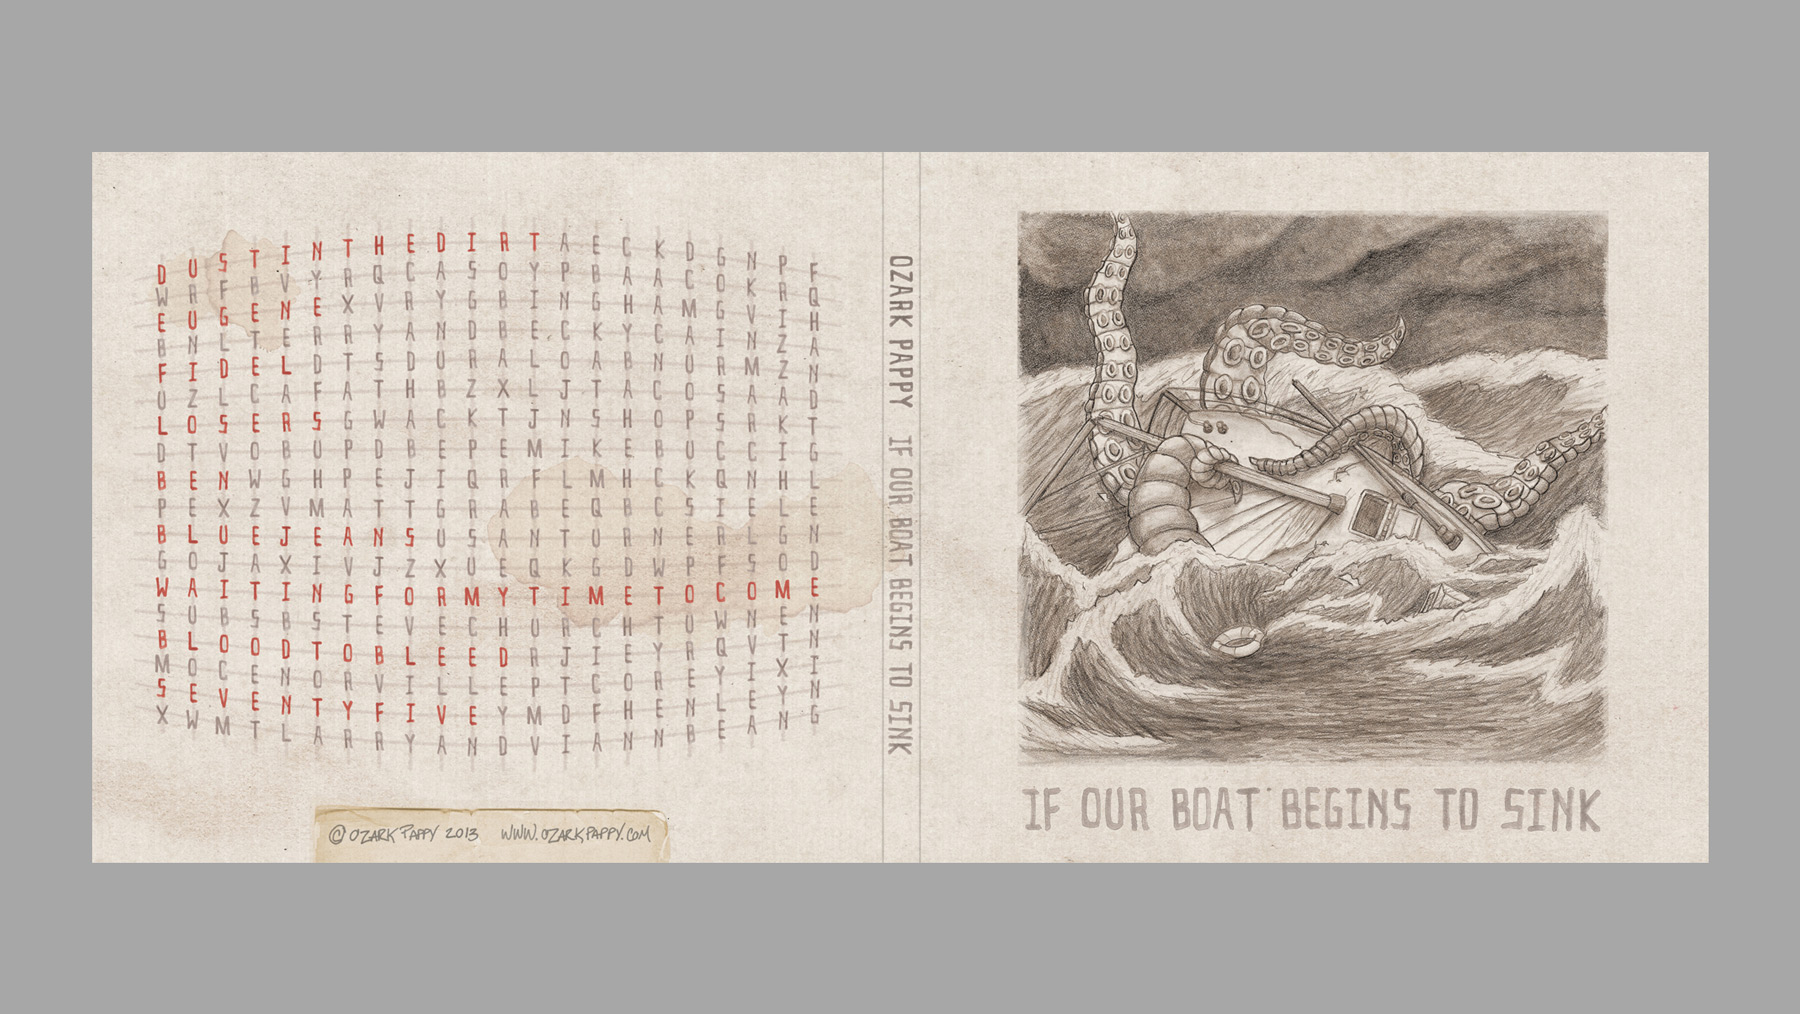 DUSTINTHEDIRTAECKDGNPF
WRFBVYRQCASOYPBAACOKRQ
EUGENEXVRYGBINGHAMGVIH
BNLTERRYANDBECKYCAINZA
FIDELDTSDURALOABNURMZN
UZLCAFATHBZXLJTACOSAAD
LOSERSGWACKTJNSHOPSRKT
DTVOBUPDBEPEMIKEBUCCIG
BENWGHPEJIQRFLMHCKQNHL
PEXZVMATTGRABEQBCSIELE
BLUEJEANSUSANTURNERLGN
GOJAXIVJZXUEQKGDWPFSOD
WAITINGFORMYTIMETOCOME
SUBSBSTEVECHURCHTUWNEN
BLOODTOBLEEDRJIEYRQVTN
MOCENORVILLEPTCOREYIXI
SEVENTYFIVEYMDFHENLEYN
XWMTLARRYANDVIANNBEANG
© OZARK PAPPY 2013 WWW.OZARKPAPPY.COM
OZARK PAPPY IF OUR BOAT BEGINS TO SINK
IF OUR BOAT BEGINS TO SINK